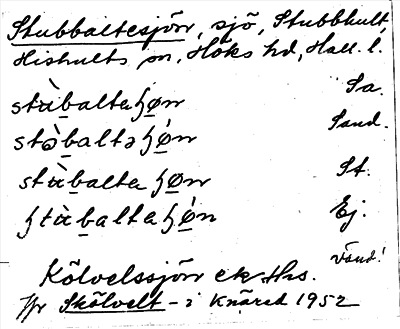 Stubbaltesjön, sjö, Stubbhult,
Hishults sn, Höks hd, Hall. l.
stùbaltaɧøn Sa.
stòbaltəɧǿn Sand.
stùbaltaɧøn St.
ɧtùbaltaɧǿn Ej.
sand!
Kölvelssjön ek Hrs.
Jfr Skölvelt - i Knäred 1952